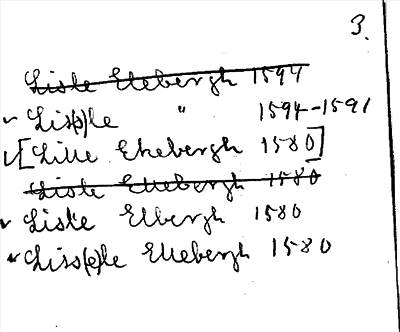 3.
Liste Elebergh 1594
✓ Lis(s)le " 1594-1591
✓ [Lille Ekebergh 1580]
Liste Ellebergh 1580
✓ Liste Elbergh 1580
✓ Liss(e)le Ellebergh 1580